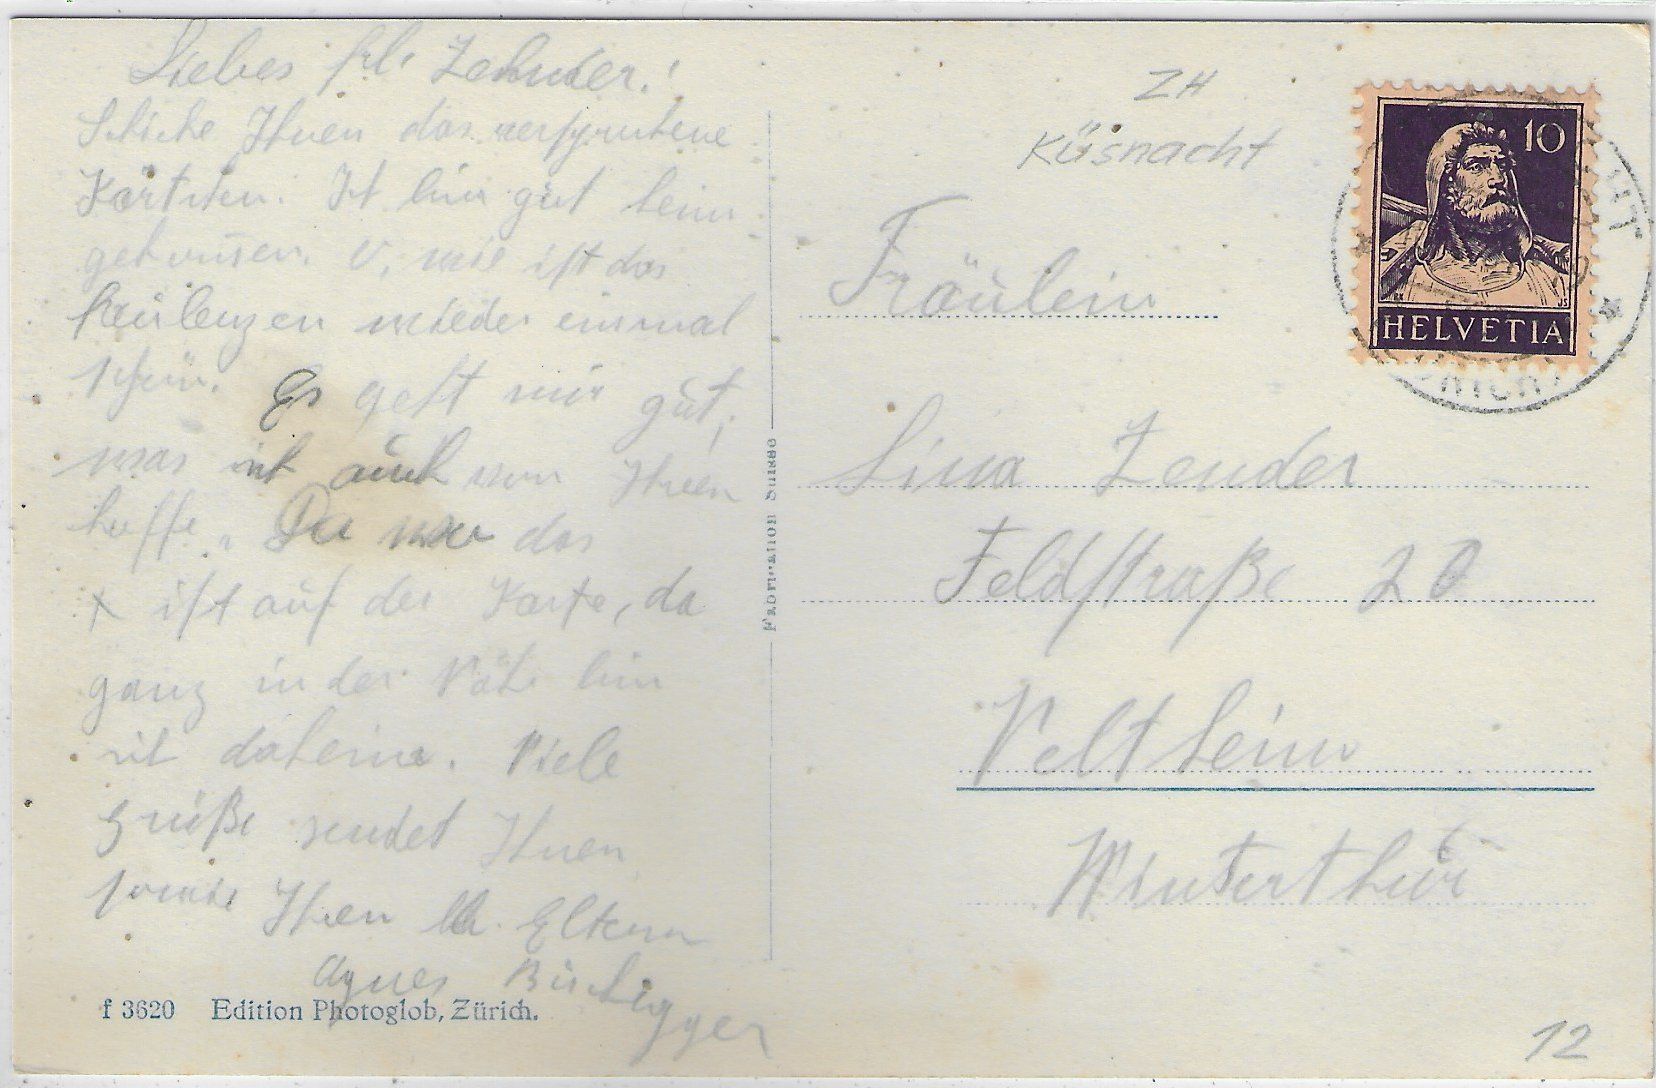 Liebes Frl. Zehnder!
Schicke Ihnen das versprochene
Kärtchen. Ich bin gut heim
gekommen. O, wie ist das
faulenzen wieder einmal
schön. Es geht mir gut,
was ich auch von Ihnen
hoffe. Da wo das
x ist auf der Karte, da
ganz in der Nähe bin
ich daheim. Viele
Grüße sendet Ihnen
sowie Ihren lb. Eltern
Agnes
f 3620 Edition Photoglob, Zürich.
Fabrication Suisse
ZH
Küsnacht
10
HELVETIA
Fräulein
Lina Zender
Feldstraße 20
Veltheim
Winterthur
12